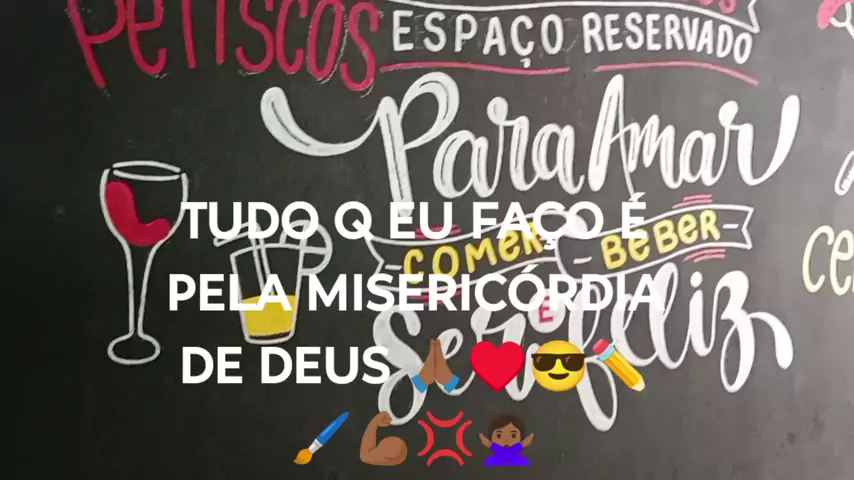 Petiscos
ESPAÇO RESERVADO
Para Amar
COMER
BEBER
E
Ser feliz
TUDO Q EU FAÇO É
PELA MISERICÓRDIA
DE DEUS 🙏🏾♥️😎✏️
🖌️💪🏾💢🙅🏾‍♀️